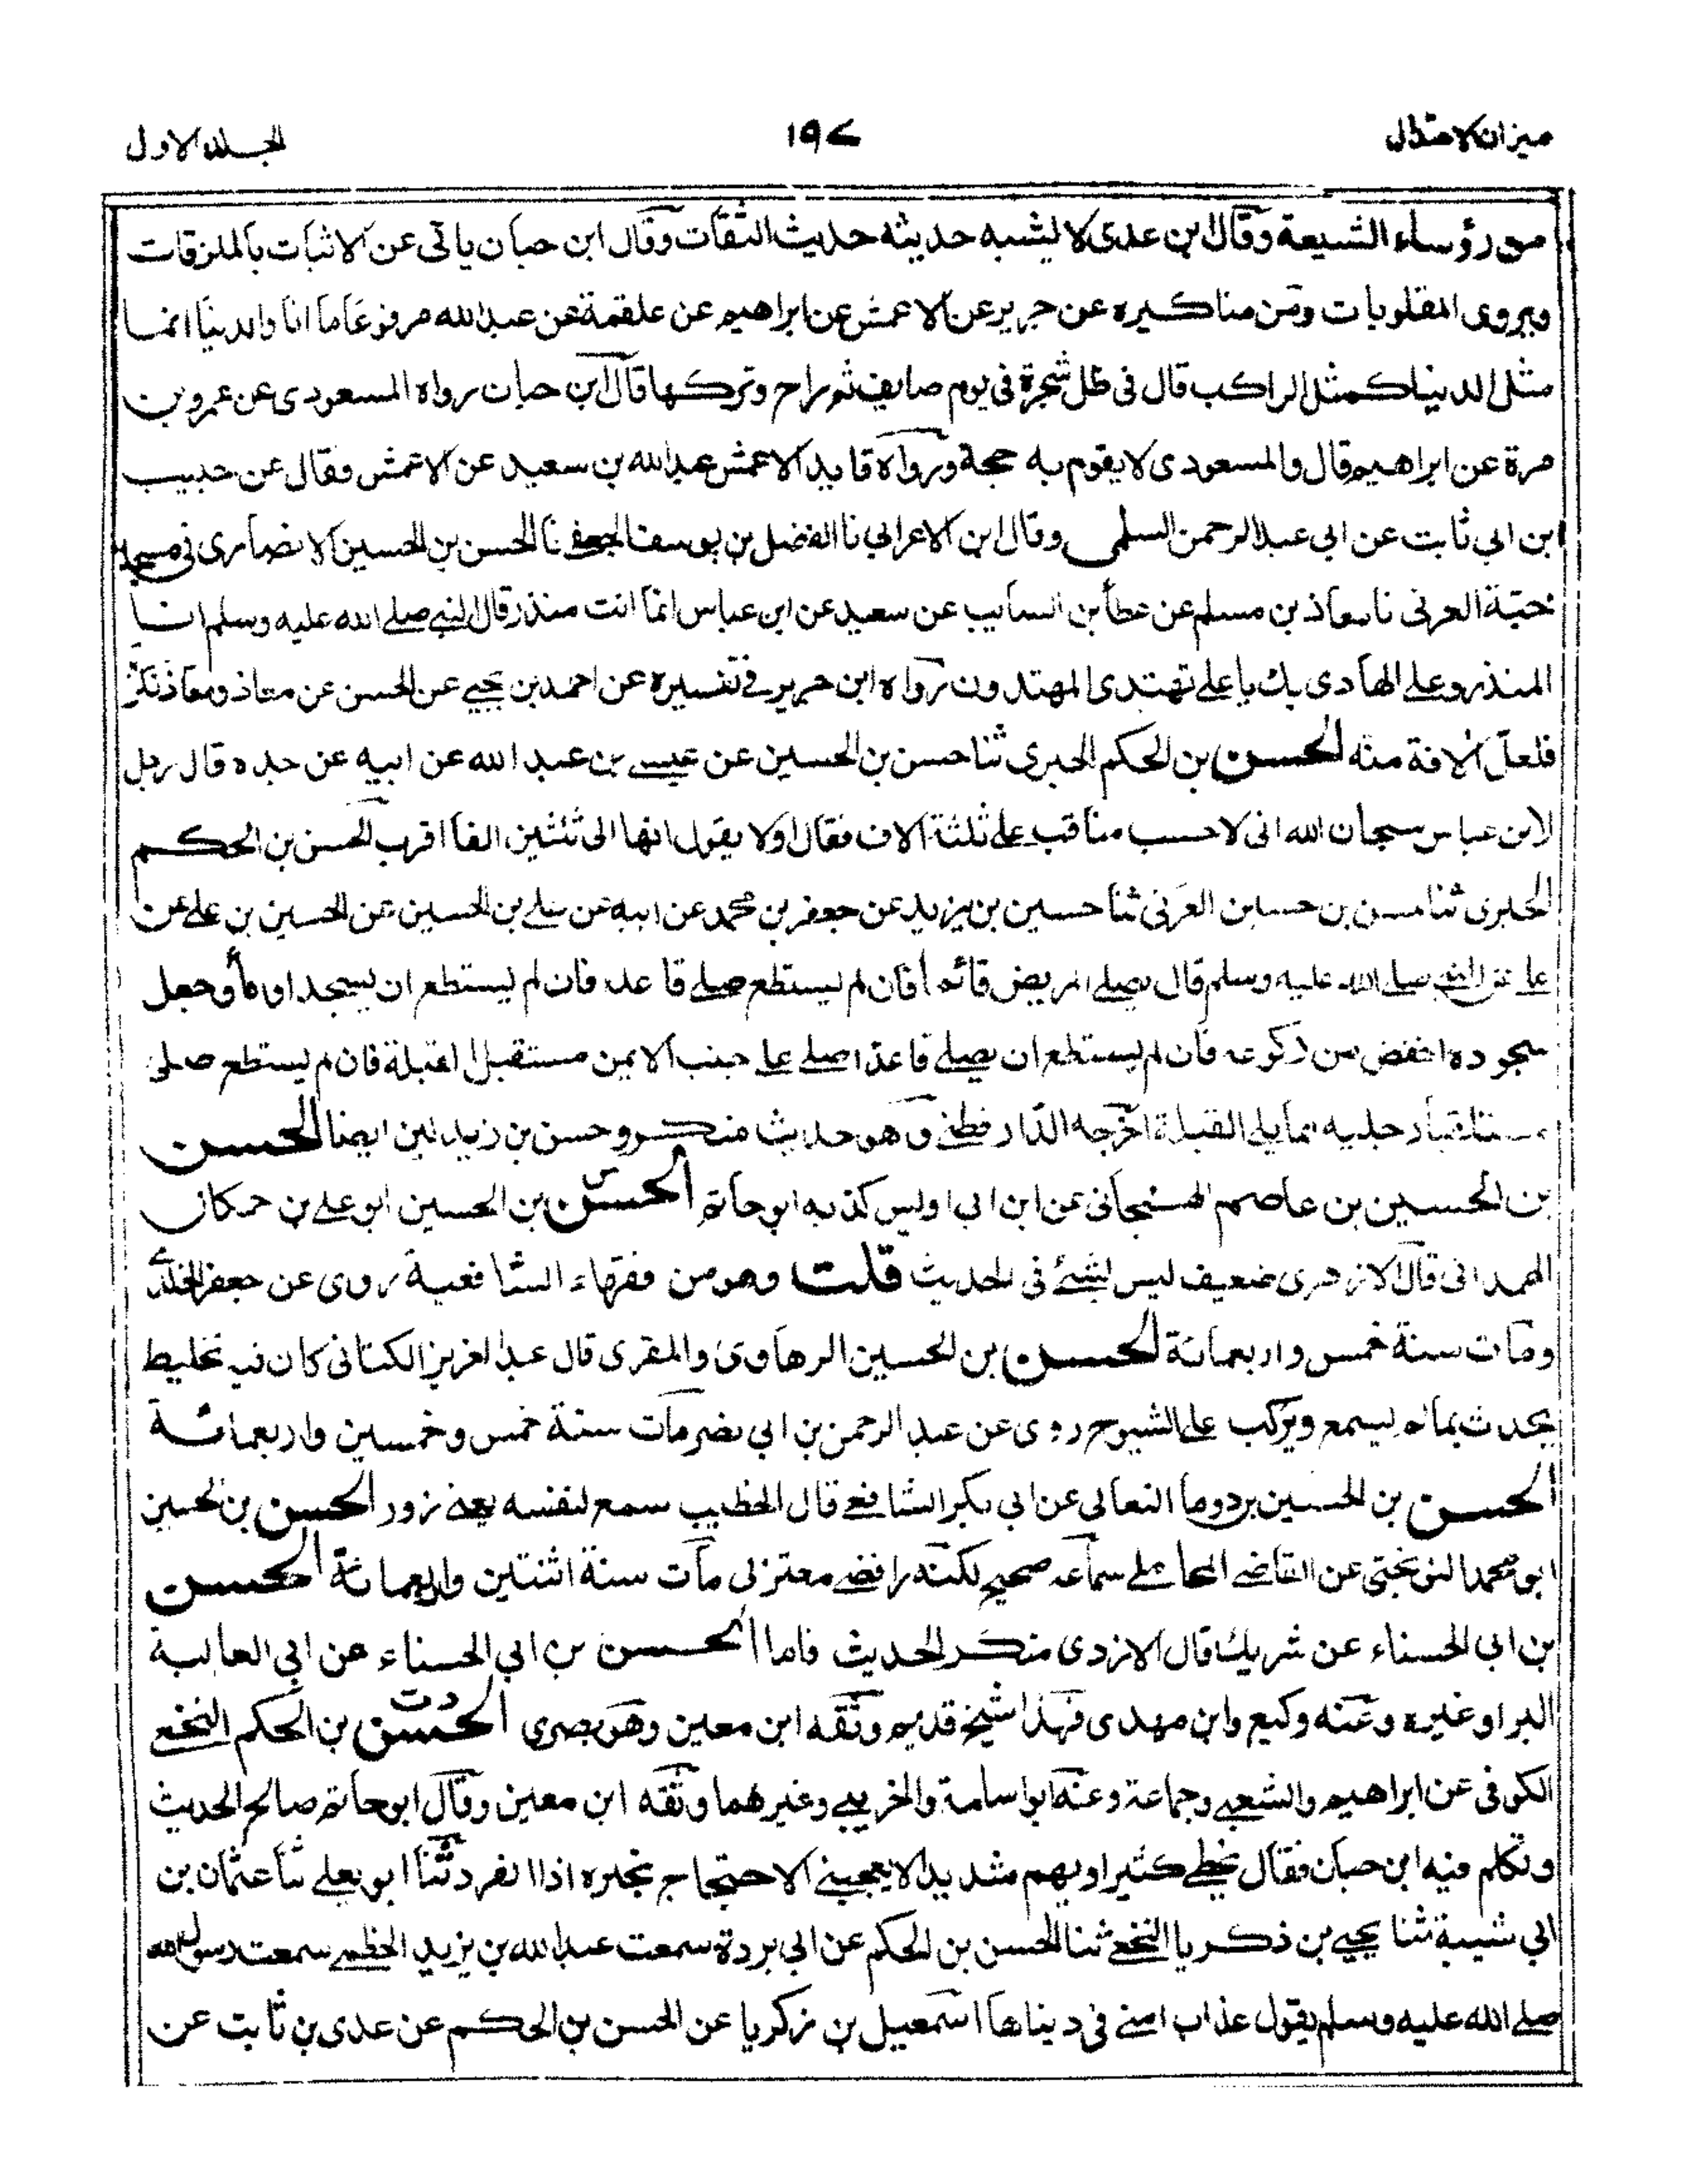 ميزان الاعتدال
١٩٧
الجلد الاول
من رؤساء الشيعة وقال ابن عدى لا يشبه حديثه حديث الثقات وقال ابن حبان ياتى عن الاثبات بالملزقات
ويروى المقلوبات ومن مناكيره عن جرير عن الاعمش عن ابراهيم عن علقمة عن عبد الله مرفوعا ما انا والدنيا انما
مثل الدنيا كمثل الراكب قال فى ظل شجرة فى يوم صايف ثم راح وتركها قال ابن حبان رواه المسعودى عن عمرو بن
مرة عن ابراهيم قال والمسعودى لا يقوم به حجة ورواه قايد الاعمش عبد الله بن سعيد عن الاعمش وفقال عن حبيب
ابن ابى ثابت عن ابى عبد الرحمن السلمى وقال ابن الاعرابى نا الفضل بن يوسف الجعفى نا الحسن بن الحسين الانصارى فى مسجد
حبة العرنى نا معاذ بن مسلم عن عطا بن السايب عن سعيد عن ابن عباس انما انت منذر قال النبى صلى الله عليه وسلم انا
المنذر وعلى الهادى بك يا على تهتدى المهتدون رواه ابن جرير فى تفسيره عن احمد بن يحيى عن الحسن عن معاذ ومعاذ نكرة
فلعل الافة منه الحسن بن الحكم الحبرى ثنا حسن بن الحسين عن عيسى بن عبد الله عن ابيه عن جده قال رجل
لابن عباس سبحان الله انى لاحسب مناقب على ثلثة الاف فقال اولا يقول انها الى ثلثين الفا اقرب الحسن بن الحكم
الحبرى ثنا حسن بن حسين العرنى ثنا حسين بن يزيد عن جعفر بن محمد عن ابيه عن على بن الحسين عن الحسين بن على عن
على عن النبى صلى الله عليه وسلم قال يصلى المريض قائما فان لم يستطع صلى قاعدا فان لم يستطع ان يسجد اومأ وجعل
سجوده اخفض من ركوعه فان لم يستطع ان يصلى قاعدا صلى على جنبه الايمن مستقبل القبلة فان لم يستطع صلى
مستلقيا رجليه مما يلى القبلة اخرجه الدارقطنى وهو حديث منكر وحسن بن زيد لين ايضا الحسن
بن الحسين بن عاصم الهسنجانى عن ابن ابى اويس كذبه ابو حاتم الحسن بن الحسين ابو على بن حمكان
الهمدانى قال الازهرى ضعيف ليس بشئ فى الحديث قلت وهو من فقهاء الشافعية روى عن جعفر الخلدى
ومات سنة خمس واربعمائة الحسن بن الحسين الرهاوى والمقرى قال عبد العزيز الكتانى كان فيه تخليط
يحدث بما لم يسمع ويركب على الشيوخ روى عن عبد الرحمن بن ابى نصر مات سنة خمس وخمسين واربعمائة
الحسن بن الحسين بردوما النعالى عن ابى بكر الشافعى قال الخطيب سمع لنفسه يعنى زور الحسن بن الحسين
ابو محمد النوبختى عن القاضى المحاملى سماعه صحيح لكنه رافضى معتزلى مات سنة اثنتين واربعمائة الحسن
بن ابى الحسناء عن شريك قال الازدى منكر الحديث فاما الحسن بن ابى الحسناء عن ابى العالية
البراوغيره وعنه وكيع وابن مهدى فهذا شيخ قديم وثقه ابن معين وهو بصرى الحسن بن الحكم النخعى
الكوفى عن ابراهيم والشعبى وجماعة وعنه ابو اسامة والخريبى وغيرهما وثقه ابن معين وقال ابو حاتم صالح الحديث
وتكلم فيه ابن حبان فقال يخطى كثيرا ويهم شديدا لا يعجبنى الاحتجاج بخبره اذا انفرد ثنا ابو يعلى ثنا عثمان بن
ابى شيبة ثنا يحيى بن ذكريا النخعى ثنا الحسن بن الحكم عن ابى بردة سمعت عبد الله بن يزيد الخطمى سمعت رسول الله
صلى الله عليه وسلم يقول عذاب امتى فى ديناها اسمعيل بن زكريا عن الحسن بن الحكم عن عدى بن ثابت عن